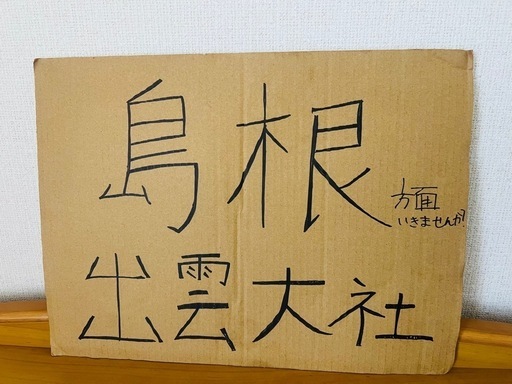 島根
方面
いきませんか?
出雲大社